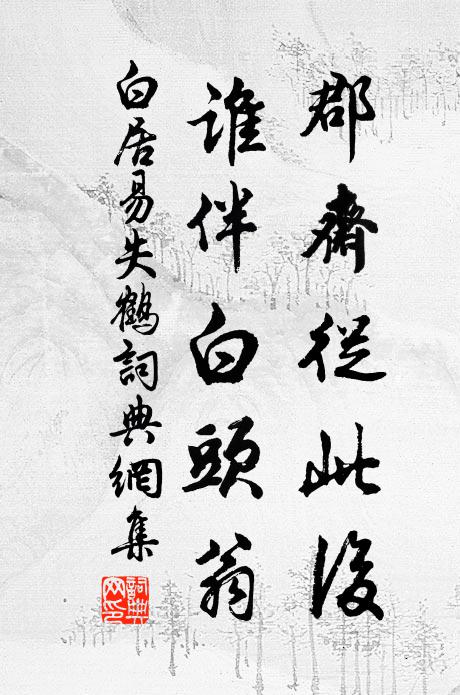 郡齋從此後
誰伴白頭翁
白居易失鶴詞典網集
詞典網印